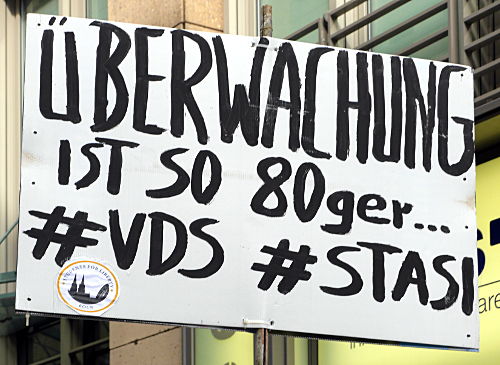 ÜBERWACHUNG
IST SO 80ger...
#VDS #STASI
KÖLN
are